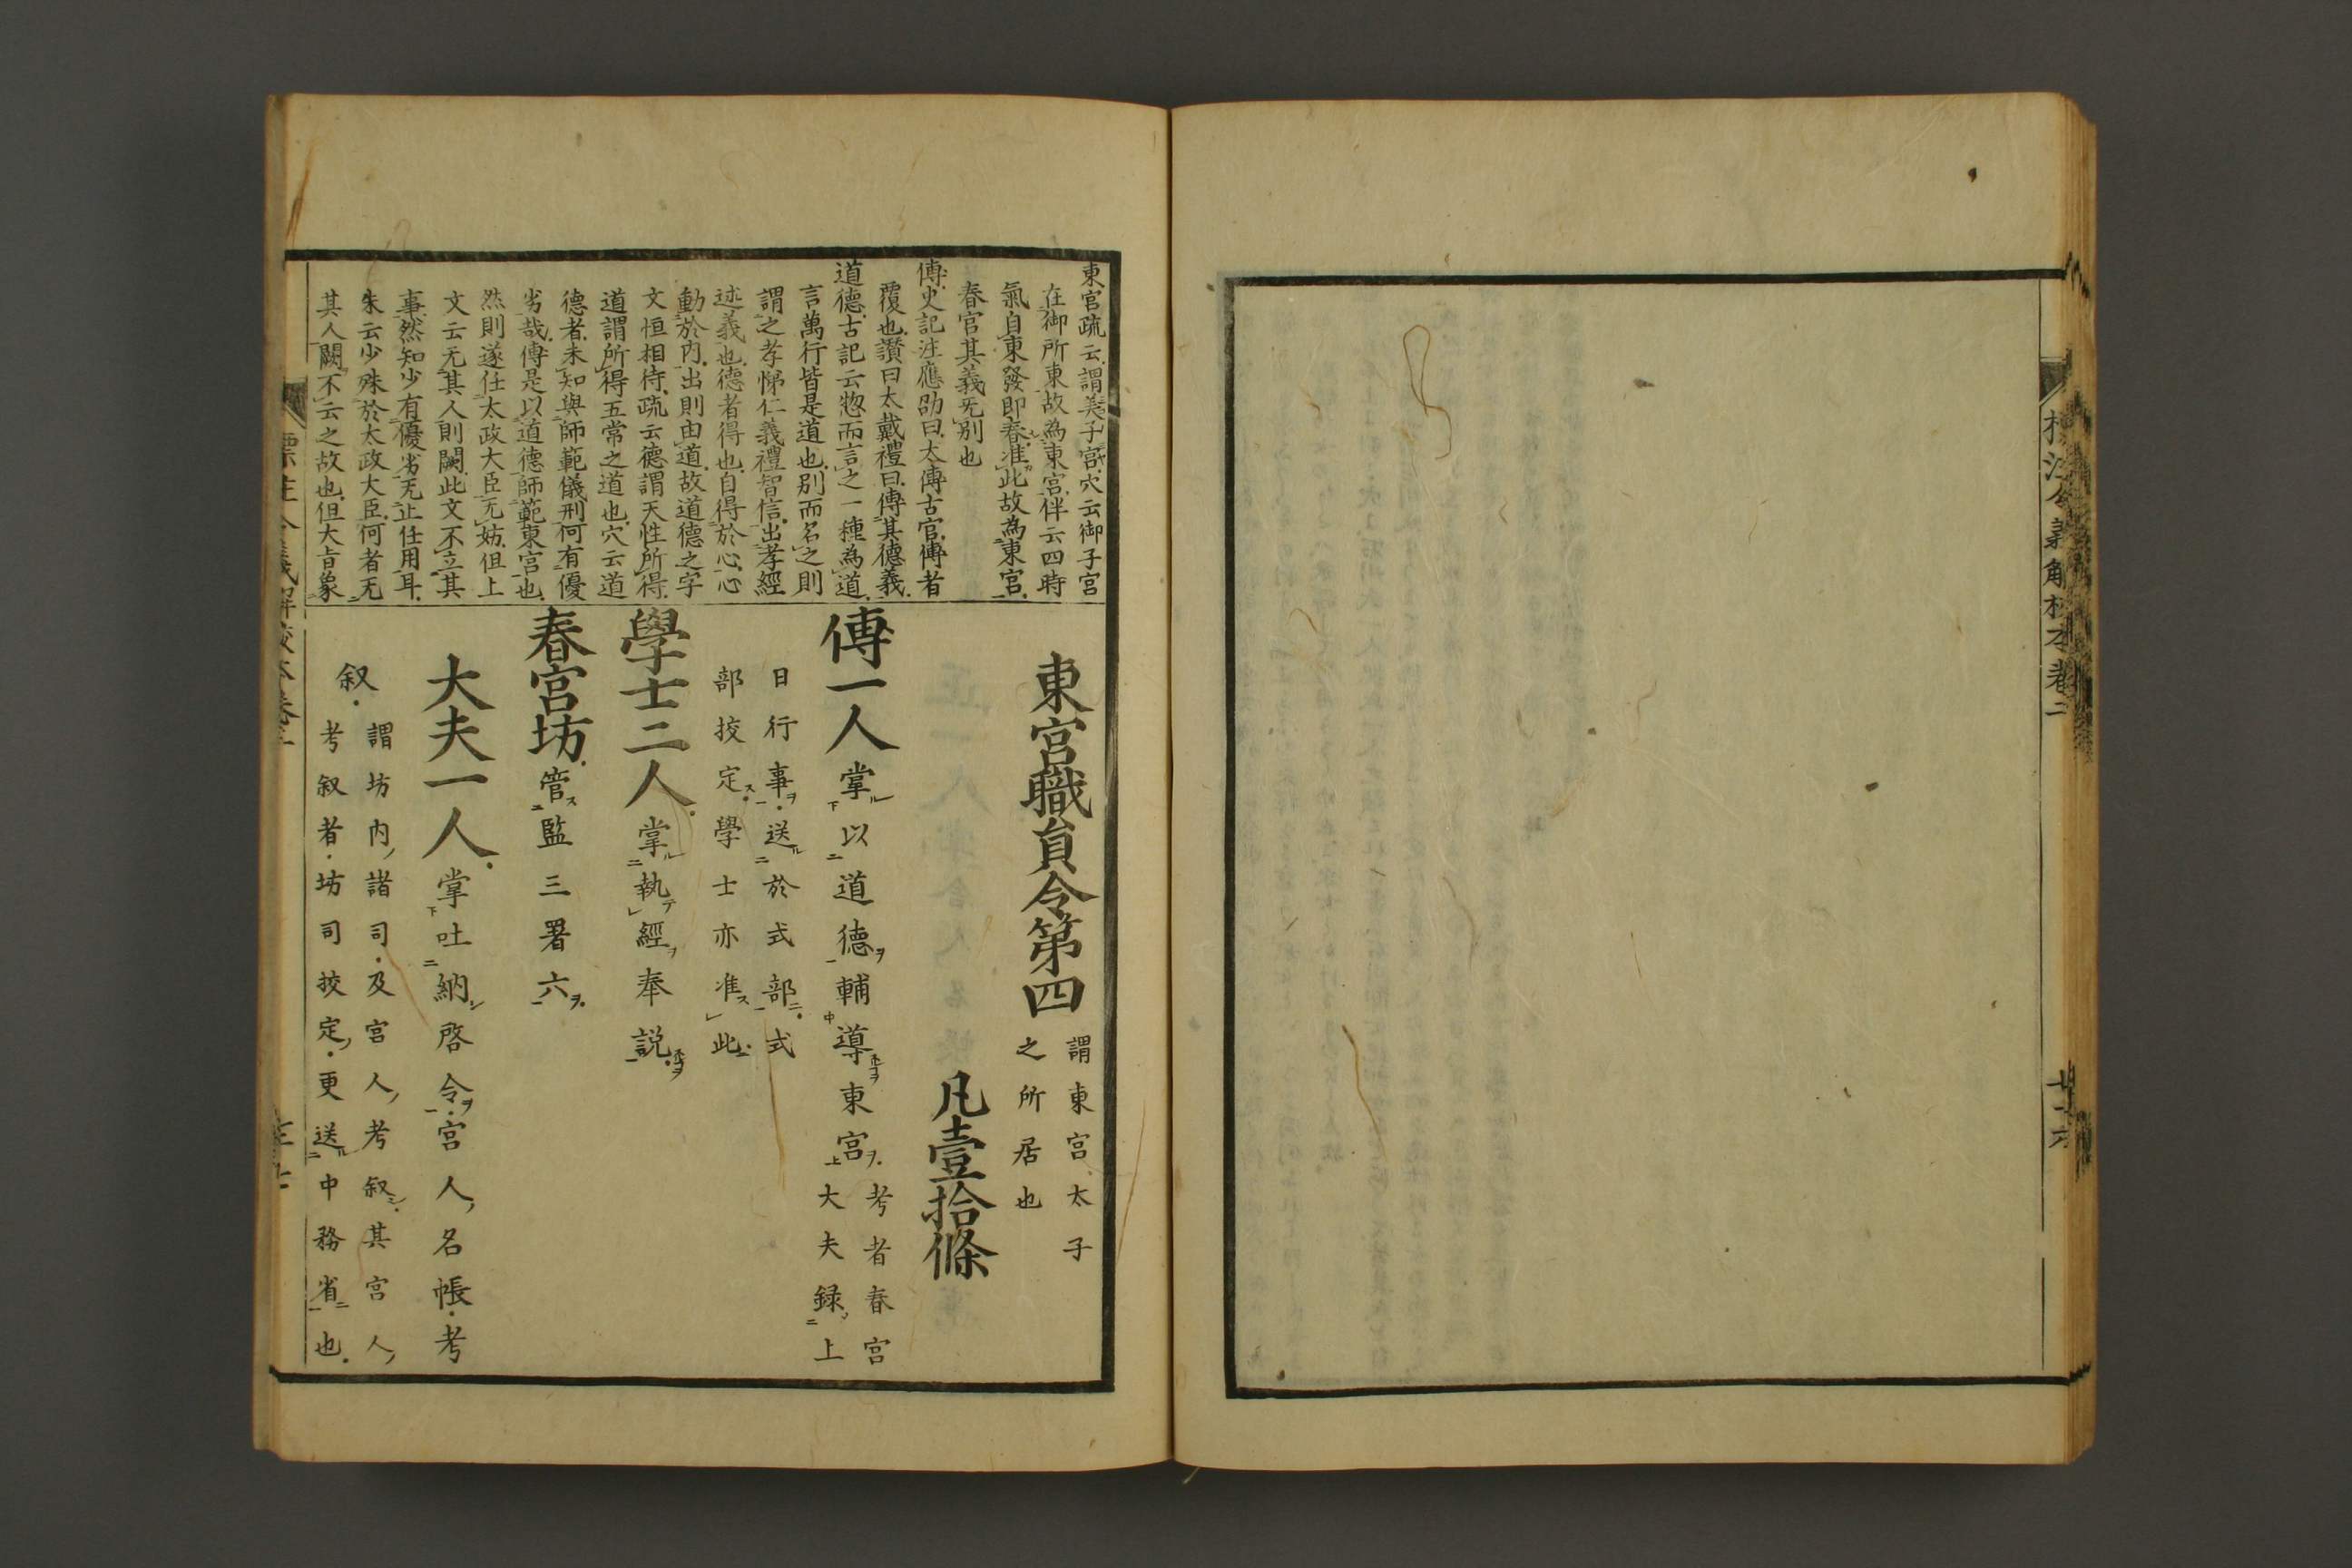 標注令義解校本卷二
東宮疏云謂美子宮穴云御子宮
在御所東故為東宮伴云四時
氣自東發即春准此故為東宮
春宮其義旡別也
傅史記注應劭曰太傅古官傅者
覆也讚曰太戴禮曰傅其德義
道德古記云惣而言之一種為道
言萬行皆是道也別而名之則
謂之孝悌仁義禮智信出孝經
述義也德者得也自得於心心
動於內出則由道故道德之字
文恒相待疏云德謂天性所得
道謂所得五常之道也穴云道
德者未知與師範儀刑何有優
劣哉傅是以道德師範東宮也
然則遂任太政大臣旡妨但上
文云旡其人則闕此文不立其
事然知少有優劣旡止任用耳
朱云少殊於太政大臣何者旡
其人闕不云之故也但大旨象
東宮職貟令第四
謂東宮太子
之所居也
凡壹拾條
傅一人掌以道德輔導東宮
考者春宮
大夫錄上
日行事送於式部式
部挍定學士亦准此
學士二人掌執經奉説
春宮坊管監三署六
大夫一人掌吐納啓令宮人名帳考
叙
謂坊內諸司及宮人考叙其宮人
考叙者坊司挍定更送中務省也